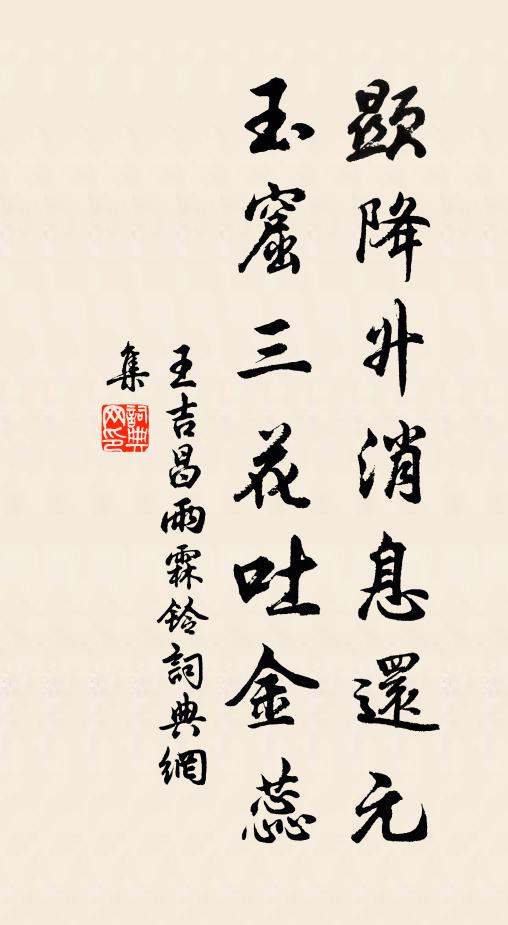 顯降升消息還元
玉窟三花吐金蕊
王吉昌雨霖鈴詞典網
集
詞典網印